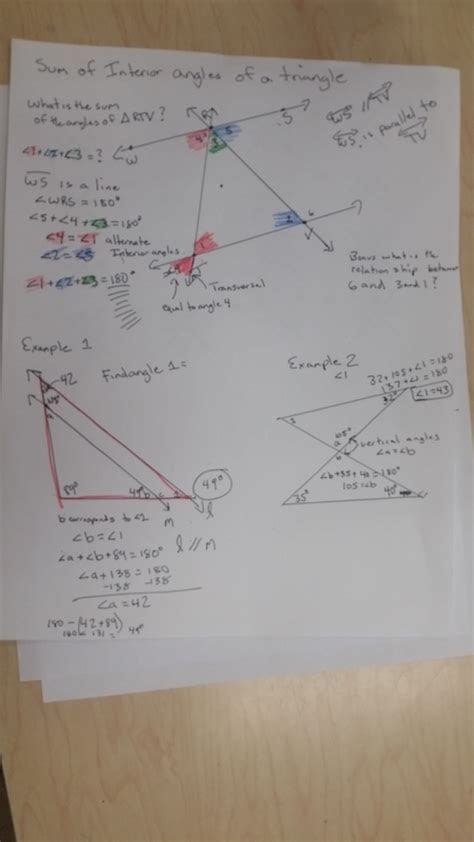 Sum of Interior angles of a triangle
What is the sum
of the angles of △RTV?
∠1+∠2+∠3=?
WS is a line
∠WRS=180°
∠5+∠4+∠3=180°
∠4=∠1 alternate
∠2=∠5 Interior angles.
∠1+∠2+∠3=180°
R
S
W
4
5
3
1
2
6
V
T
Transversal
equal to angle 4
WS // TV
WS is parallel to
TV
Bonus what is the
relationship between
6 and 3 and 1?
Example 1
Find angle 1=
42
89°
49°
b
49°
l
M
b corresponds to ∠1
∠b=∠1
l // M
∠a+∠b+89=180°
∠a+138=180
-138 -138
∠a=42
180-(42+89)
180-131=
49°
Example 2
∠1
32+105+∠1=180
137+∠1=180
∠1=43
32°
105°
a
b
vertical angles
∠a=∠b
∠b+35+40=180°
105=∠b
35°
40°